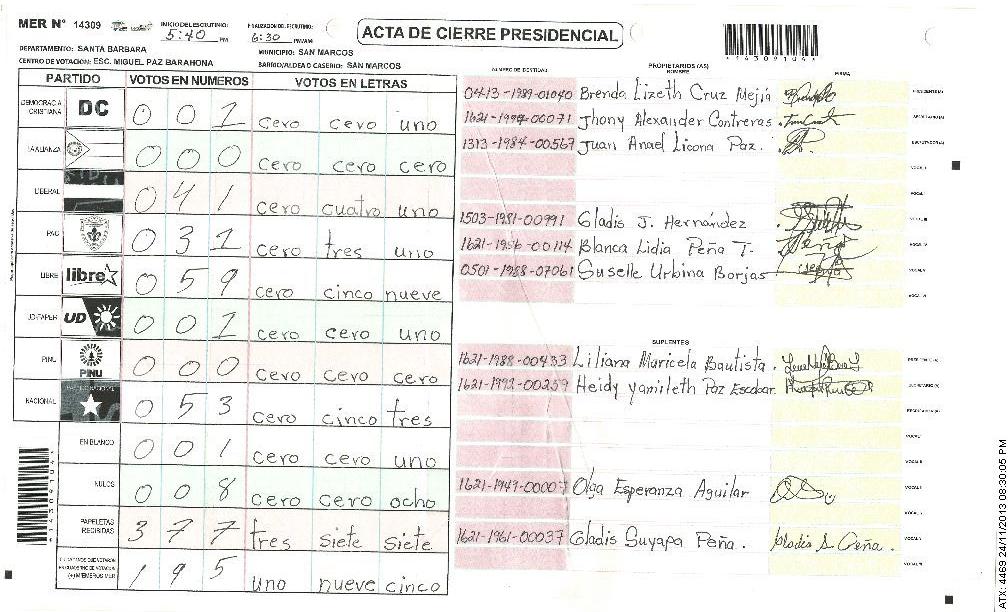 MER N° 14309
INICIO DEL ESCRUTINIO: 5:40 PM
FINALIZACION DEL ESCRUTINIO: 6:30 PM/AM
ACTA DE CIERRE PRESIDENCIAL
*1430910 4*
DEPARTAMENTO: SANTA BARBARA
MUNICIPIO: SAN MARCOS
CENTRO DE VOTACION: ESC. MIGUEL PAZ BARAHONA
BARRIO/ALDEA O CASERIO: SAN MARCOS
PARTIDO VOTOS EN NUMEROS VOTOS EN LETRAS
DEMOCRACIA CRISTIANA DC 0 0 1 cero cero uno
LA ALIANZA 0 0 0 cero cero cero
LIBERAL 0 4 1 cero cuatro uno
PAC 0 3 1 cero tres uno
LIBRE libre 0 5 9 cero cinco nueve
UD-FAPER UD 0 0 1 cero cero uno
PINU PINU 0 0 0 cero cero cero
NACIONAL PARTIDO NACIONAL 0 5 3 cero cinco tres
EN BLANCO 0 0 1 cero cero uno
NULOS 0 0 8 cero cero ocho
PAPELETAS RECIBIDAS 3 7 7 tres siete siete
CIUDADANOS QUE VOTARON EN CUADERNO DE VOTACION (+) MIEMBROS MER 1 9 5 uno nueve cinco
NUMERO DE IDENTIDAD
PROPIETARIOS (AS)
NOMBRE
FIRMA
0413-1989-01040 Brenda Lizeth Cruz Mejia PRESIDENTE(A)
1621-1994-00071 Jhony Alexander Contreras SECRETARIO(A)
1313-1984-00567 Juan Anael Licona Paz. ESCRUTADOR(A)
VOCAL I
VOCAL II
1503-1981-00991 Gladis J. Hernández VOCAL III
1621-1956-00114 Blanca Lidia Peña T. VOCAL IV
0501-1988-07061 Suselle Urbina Borjas VOCAL V
VOCAL VI
SUPLENTES
1621-1988-00433 Liliana Maricela Bautista. PRESIDENTE(A)
1621-1992-00259 Heidy Yamileth Paz Escobar SECRETARIO(A)
ESCRUTADOR(A)
VOCAL I
VOCAL II
1621-1949-00007 Olga Esperanza Aguilar
1621-1961-00037 Gladis Suyapa Peña. Gladis S. Peña.
ATX: 4469 24/11/2013 08:30:05 PM